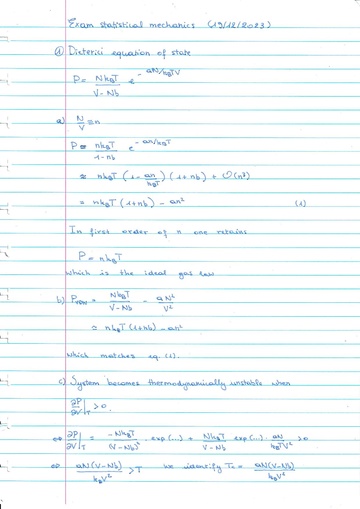 Exam statistical mechanics (19/12/2023)
① Dieterici equation of state
P = Nk_BT/(V-Nb) e^(-aN/k_BTV)
a) N/V ≡ n
P = nk_BT/(1-nb) e^(-an/k_BT)
≈ nk_BT (1 - an/k_BT) (1+nb) + O(n³)
= nk_BT (1+nb) - an² (1)
In first order of n one retains
P = nk_BT
which is the ideal gas law
b) P_VDW = Nk_BT/(V-Nb) - aN²/V²
≈ nk_BT (1+nb) - an²
which matches eq. (1).
c) System becomes thermodynamically unstable when
∂P/∂V|_T > 0.
⇔ ∂P/∂V|_T = -Nk_BT/(V-Nb)² exp(...) + Nk_BT/(V-Nb) exp(...) aN/k_BTV² > 0
⇔ aN(V-Nb)/k_BV² > T we identify T_c = aN(V-Nb)/k_BV²